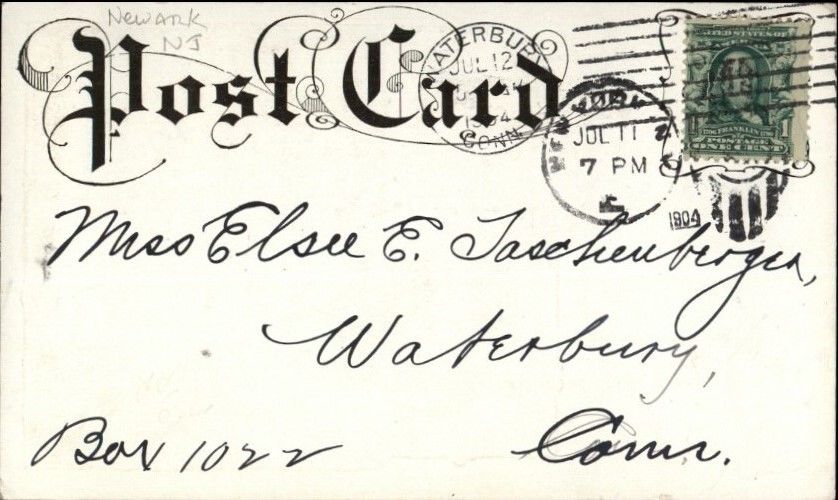 Newark
NJ
Post Card
WATERBURY
JUL 12
CONN
JUL 11
7 PM
1904
FRANKLIN
POSTAGE
ONE CENT
1
Miss Elsee E. Taschenberger,
Waterbury,
Box 1022 Conn.